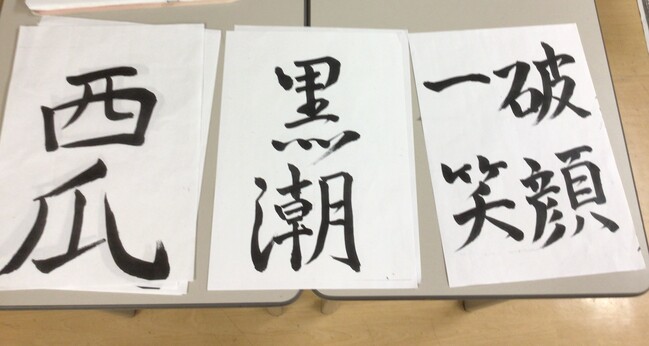 西瓜
黒潮
破顔
一笑